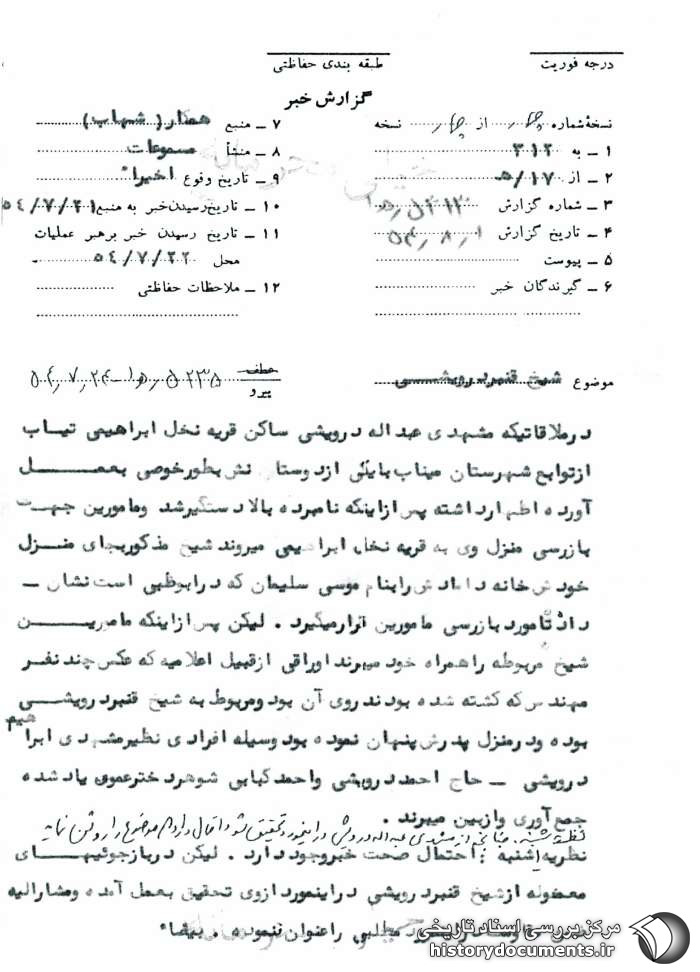 درجه فوریت
طبقه بندی حفاظتی
گزارش خبر
نسخهٔ شماره چهار از چهار نسخه
۱ ـ به ۳۱۲
۲ ـ از ۱۷/هـ
۳ ـ شماره گزارش
۴ ـ تاریخ گزارش ۵۴٫۸٫۱
۵ ـ پیوست
۶ ـ گیرندگان خبر
۷ ـ منبع همکار (شهاب)
۸ ـ منشأ مسموعات
۹ ـ تاریخ وقوع اخیرا"
۱۰ ـ تاریخ رسیدن خبر به منبع ۵۴/۷/۲۱
۱۱ ـ تاریخ رسیدن خبر برهبر عملیات
محل ۵۴/۷/۲۲
۱۲ ـ ملاحظات حفاظتی
موضوع شیخ قنبردرویشی
عطف
پیرو ۵۲۳۵ / ۱۵هـ ـ ۵۴٫۷٫۲۴
درملاقاتیکه مشهدی عبداله درویشی ساکن قریه نخل ابراهیمی تیاب
ازتوابع شهرستان میناب بایکی ازدوستانش بطورخوصی بعمل
آورده اظهارداشته پس ازاینکه نامبرده بالا دستگیرشد ومامورین جهت
بازرسی منزل وی به قریه نخل ابراهیمی میروند شیخ مذکوربجای منزل
خودش خانه دامادش رابنام موسی سلیمان که درابوظبی است نشان ـ
داد تامورد بازرسی مامورین قرارمیگیرد . لیکن پس ازاینکه مامورین
شیخ مربوطه راهمراه خود میبرند اوراقی ازقبیل اعلامیه که عکس چند نفر
مهندس که کشته شده بودند روی آن بود ومربوط به شیخ قنبردرویشی
بوده ودرمنزل پدرش پنهان نموده بود وسیله افرادی نظیرمشهدی ابراهیم
درویشی ـ حاج احمد درویشی واحمد کبابی شوهردخترعموی یاد شده
جمع آوری وازبین میبرند .
نظریه شنبه . چنانچه از مشهدی عبداله درویشی در اینمورد تحقیق شود احتمال دارد او موضوع را روشن نماید
نظریه ۱شنبه : احتمال صحت خبروجود دارد . لیکن دربازجوئیهای
معموله ازشیخ قنبردرویشی دراینمورد ازوی تحقیق بعمل آمده ومشارالیه
مطلبی راعنوان ننموده . بیضاء
مرکز بررسی اسناد تاریخی
historydocuments.ir